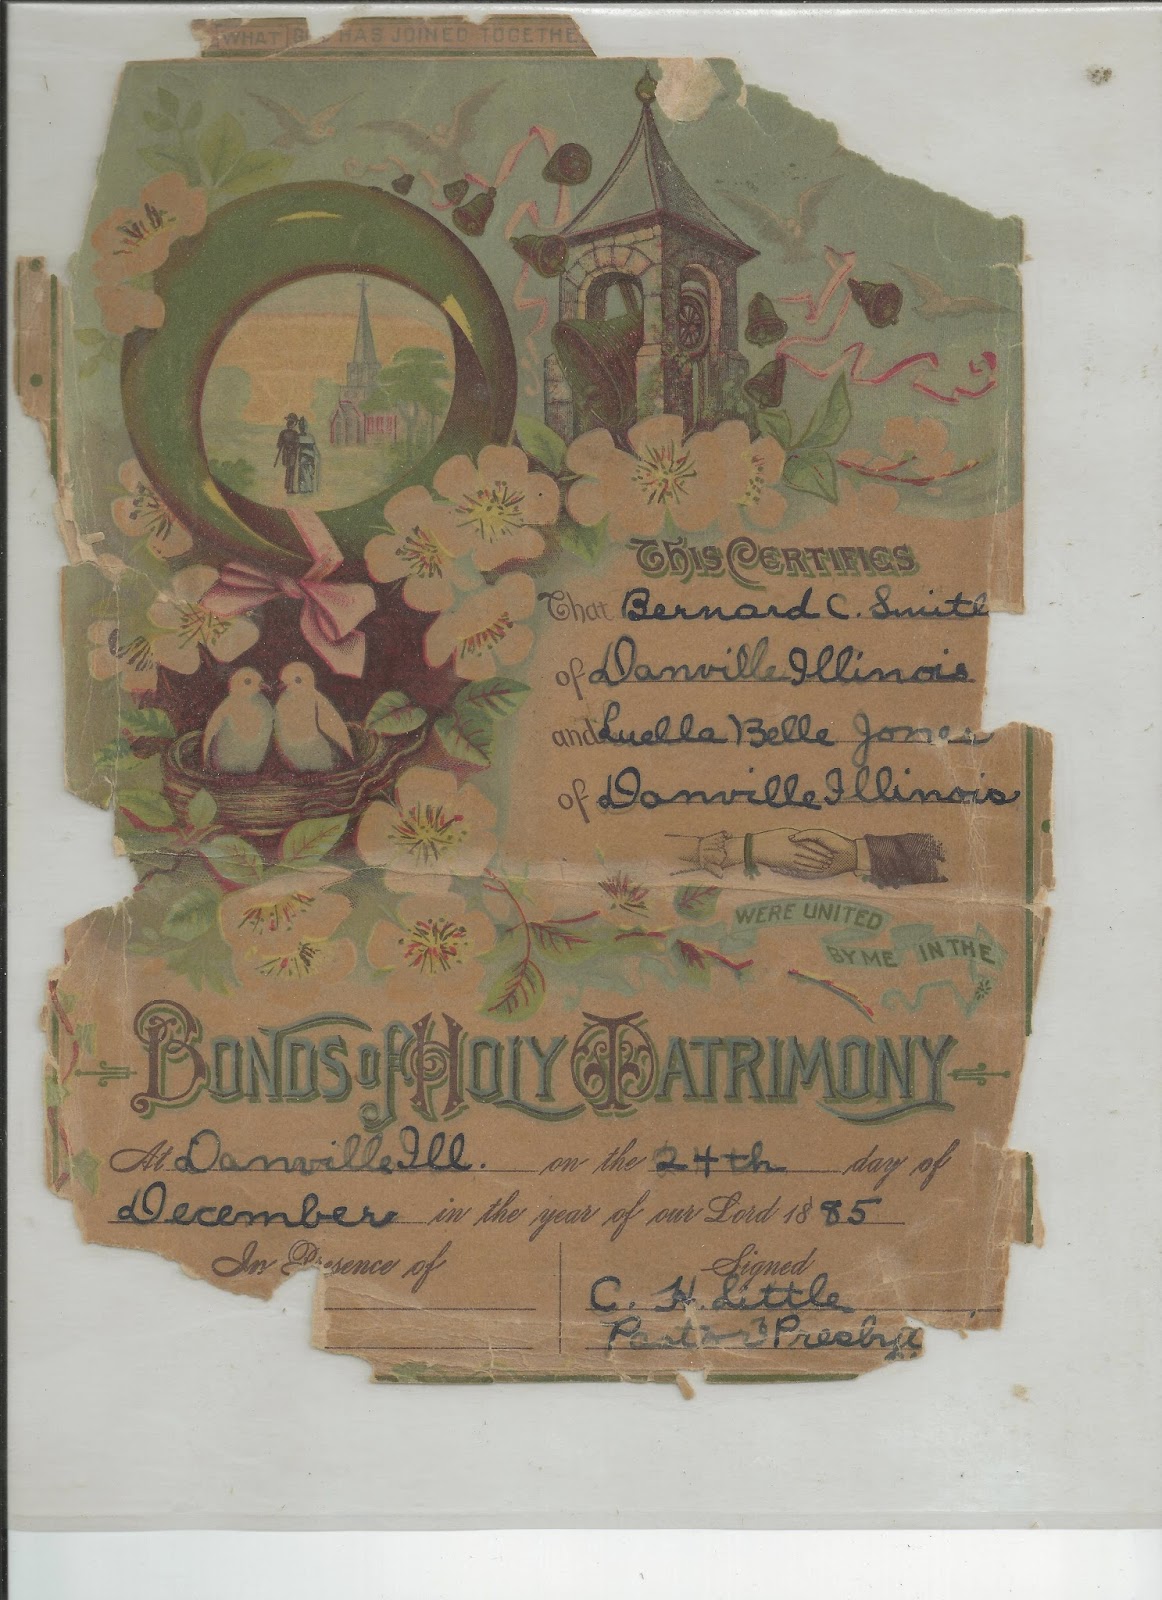 WHAT G HAS JOINED TOGETHE
This Certifies
That Bernard C. Smith
of Danville Illinois
and Luella Belle Jones
of Danville Illinois
WERE UNITED
BY ME IN THE
Bonds of Holy Matrimony
At Danville Ill. on the 24th day of
December in the year of our Lord 1885
In Presence of
Signed
C. H. Little
Pastor Presby